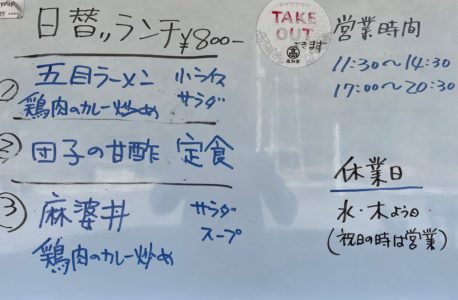 日替りランチ ¥800-
TAKE
OUT
できます
営業時間
11:30~14:30
17:00~20:30
① 五目ラーメン 小ライス
鶏肉のカレー炒め サラダ
② 団子の甘酢 定食
③ 麻婆丼 サラダ
スープ
鶏肉のカレー炒め
休業日
水・木よう日
(祝日の時は営業)